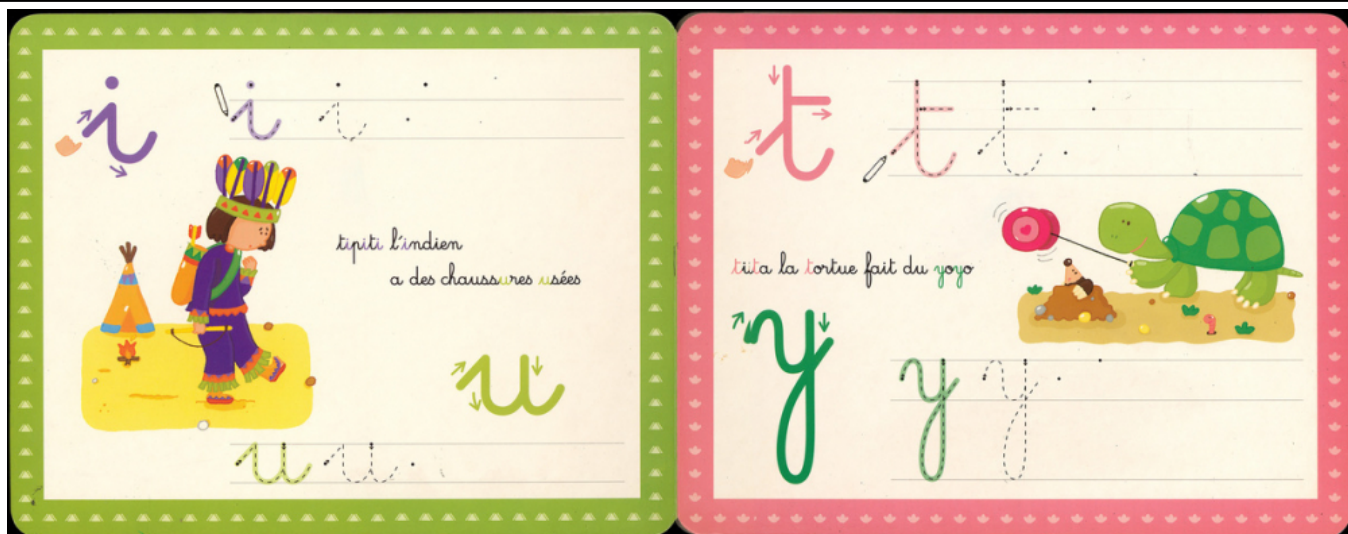 i i i
tipiti l'indien
a des chaussures usées
u
u u
t t t
titta la tortue fait du yoyo
y y y